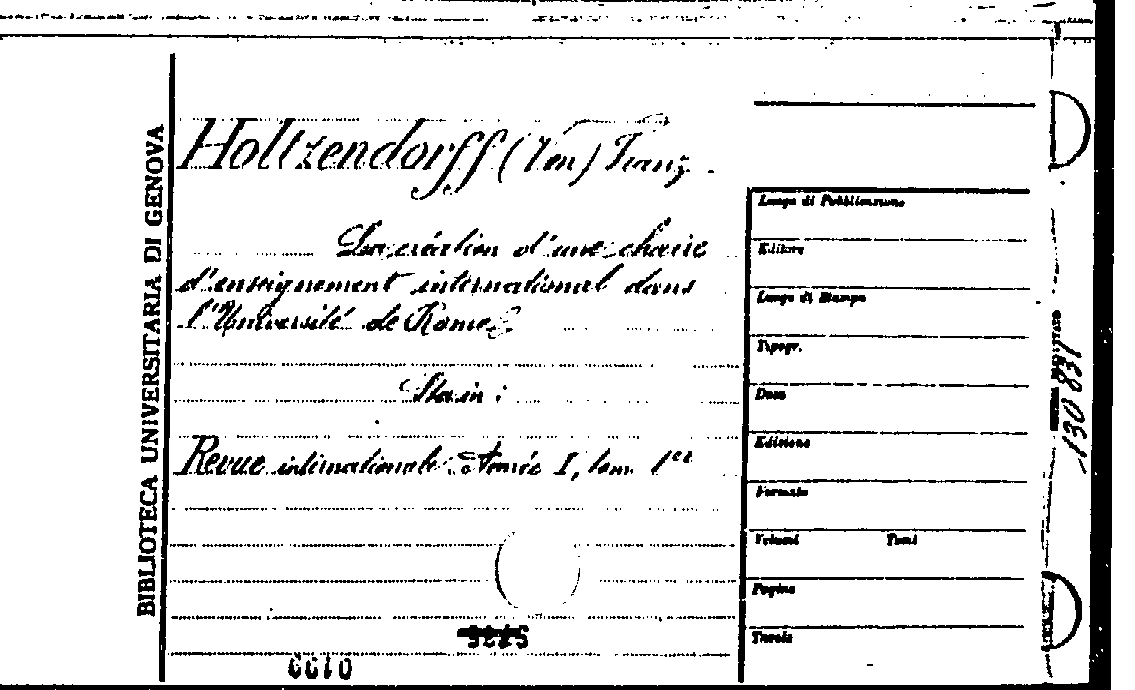 BIBLIOTECA UNIVERSITARIA DI GENOVA
Holtzendorff (Von) Franz.
La création d'une chaire
d'enseignement international dans
l'Université de Rome
Sta in:
Revue internationale Année I, tom 1er
Luogo di Pubblicazione
Editore
Luogo di Stampa
Tipogr.
Data
Edizione
Formato
Volumi Tomi
Pagine
Tavole
130 831